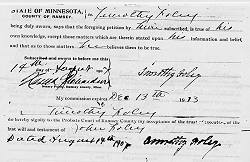 STATE OF MINNESOTA,
COUNTY OF RAMSEY. Timothy Foley
being duly sworn, says that the foregoing petition by him subscribed, is true of his
own knowledge, except those matters which are therein stated upon his information and belief,
and that as to those matters he believes them to be true.
Subscribed and sworn to before me this
14th day August
Timothy Foley
Notary Public, Ramsey County, Minn.
My commission expires Dec 13th 1913
Timothy Foley
do hereby signify to the Probate Court of Ramsey County my acceptance of the trust, as execut
the last will and testament of John Foley
Dated August 14th 1907 Timothy Foley